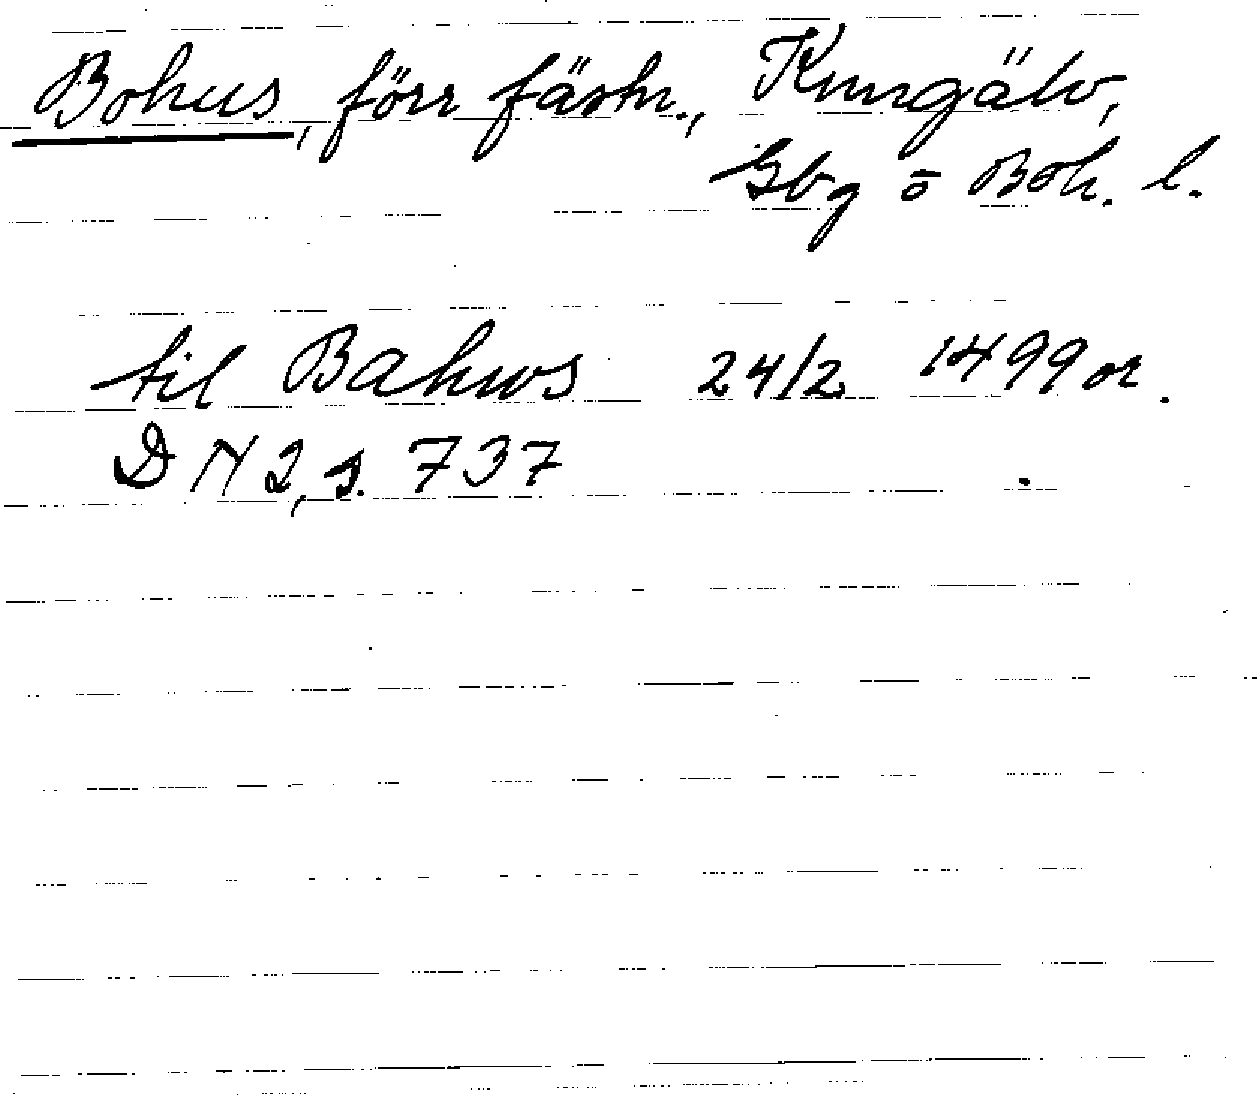 Bohus, förr fästn., Kungälv,
Gbg o Boh. l.
til Bahws 24/2 1499 or.
DN 2, s. 737